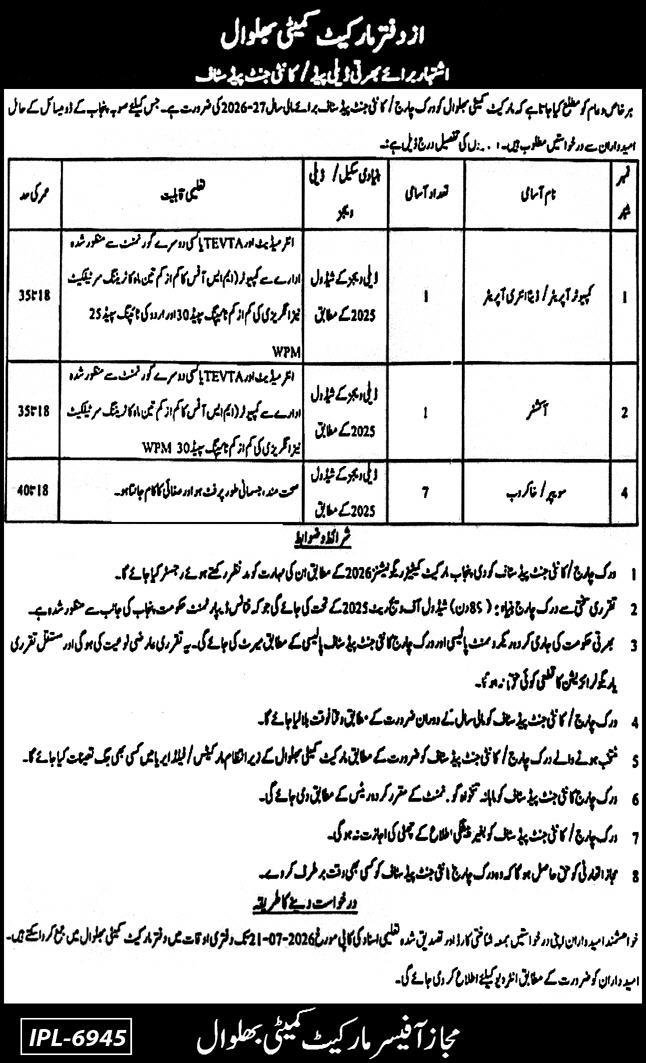 از دفتر مارکیٹ کمیٹی بھلوال
اشتہار برائے بھرتی ڈیلی پیڈ / کانٹی جنٹ پیڈ سٹاف
ہر خاص و عام کو مطلع کیا جاتا ہے کہ مارکیٹ کمیٹی بھلوال کو ورک چارج / کانٹی جنٹ پیڈ سٹاف برائے مالی سال 27-2026 کی ضرورت ہے۔ جس کیلئے صوبہ پنجاب کے ڈومیسائل کے حامل
امیدواران سے درخواستیں مطلوب ہیں۔ کی تفصیل درج ذیل ہے:۔
نمبر شمار | نام آسامی | تعداد آسامی | بنیادی سکیل / ڈیلی ویجز | تعلیمی قابلیت | عمر کی حد
1 | کمپیوٹر آپریٹر / ڈیٹا انٹری آپریٹر | 1 | ڈیلی ویجز کے شیڈول 2025 کے مطابق | انٹرمیڈیٹ اور TEVTA یا کسی دوسرے گورنمنٹ سے منظور شدہ ادارے سے کمپیوٹر (ایم ایس آفس کا کم از کم تین ماہ کا ٹریننگ سرٹیفکیٹ نیز انگریزی کی کم از کم ٹائپنگ سپیڈ 30 اور اردو کی ٹائپنگ سپیڈ 25 WPM | 18 تا 35
2 | آکشنر | 1 | ڈیلی ویجز کے شیڈول 2025 کے مطابق | انٹرمیڈیٹ اور TEVTA یا کسی دوسرے گورنمنٹ سے منظور شدہ ادارے سے کمپیوٹر (ایم ایس آفس کا کم از کم تین ماہ کا ٹریننگ سرٹیفکیٹ نیز انگریزی کی کم از کم ٹائپنگ سپیڈ 30 WPM | 18 تا 35
4 | سویپر / خاکروب | 7 | ڈیلی ویجز کے شیڈول 2025 کے مطابق | صحت مند، جسمانی طور پر فٹ ہو اور صفائی کا کام جانتا ہو۔ | 18 تا 40
شرائط و ضوابط
1 ورک چارج / کانٹی جنٹ پیڈ سٹاف کو دی پنجاب مارکیٹ کمیٹیز ریگولیشنز 2026 کے مطابق ان کی مہارت کو مد نظر رکھتے ہوئے رجسٹر کیا جائے گا۔
2 تقرری سختی سے ورک چارج بنیاد: (85 دن) شیڈول آف ویج ریٹ 2025 کے تحت کی جائے گی جو کہ فنانس ڈیپارٹمنٹ حکومت پنجاب کی جانب سے منظور شدہ ہے۔
3 بھرتی حکومت کی جاری کردہ ریکروٹمنٹ پالیسی اور ورک چارج کانٹی جنٹ پیڈ سٹاف پالیسی کے مطابق میرٹ کی جائے گی۔ یہ تقرری عارضی نوعیت کی ہوگی اور مستقل تقرری
یا ریگولرائزیشن کا قطعی کوئی حق نہ ہوگا۔
4 ورک چارج / کانٹی جنٹ پیڈ سٹاف کو مالی سال کے دوران ضرورت کے مطابق وقتا فوقتا بلایا جائے گا۔
5 منتخب ہونے والے ورک چارج / کانٹی جنٹ پیڈ سٹاف کو ضرورت کے مطابق مارکیٹ کمیٹی بھلوال کے زیر انتظام مارکیٹس / فیلڈ ایریا میں کسی بھی جگہ تعینات کیا جائے گا۔
6 ورک چارج کانٹی جنٹ پیڈ سٹاف کو ماہانہ تنخواہ گورنمنٹ کے مقرر کردہ ریٹس کے مطابق دی جائے گی۔
7 ورک چارج / کانٹی جنٹ پیڈ سٹاف کو بغیر پیشگی اطلاع کے چھٹی کی اجازت نہ ہوگی۔
8 مجاز اتھارٹی کو حق حاصل ہوگا کہ وہ ورک چارج کانٹی جنٹ پیڈ سٹاف کو کسی بھی وقت برطرف کر دے۔
درخواست دینے کا طریقہ
خواہشمند امیدواران اپنی درخواستیں بمعہ شناختی کارڈ اور تصدیق شدہ تعلیمی اسناد کی کاپی مورخہ 2026-07-21 تک دفتری اوقات میں دفتر مارکیٹ کمیٹی بھلوال میں جمع کروا سکتے ہیں۔
امیدواران کو ضرورت کے مطابق انٹرویو کیلئے اطلاع کر دی جائے گی۔
مجاز آفیسر مارکیٹ کمیٹی بھلوال
IPL-6945